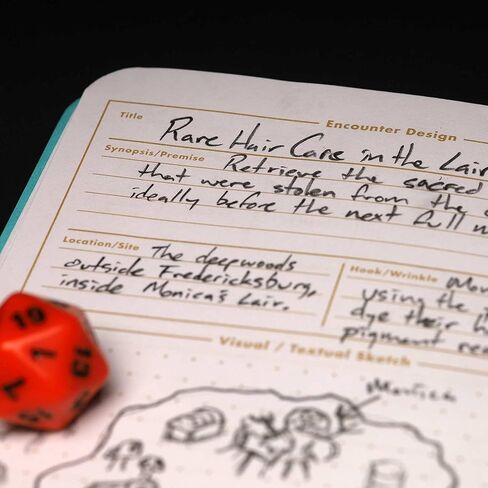 Title
Encounter Design
Rare Hair Care in the Lair
Synopsis/Premise Retrieve the sacred
that were stolen from the
ideally before the next full
Location/Site The deepwoods
outside Fredericksburg,
inside Monica's Lair.
Hook/Wrinkle
using the
dye their
pigment
Visual / Textual Sketch
Monica
10
1
7